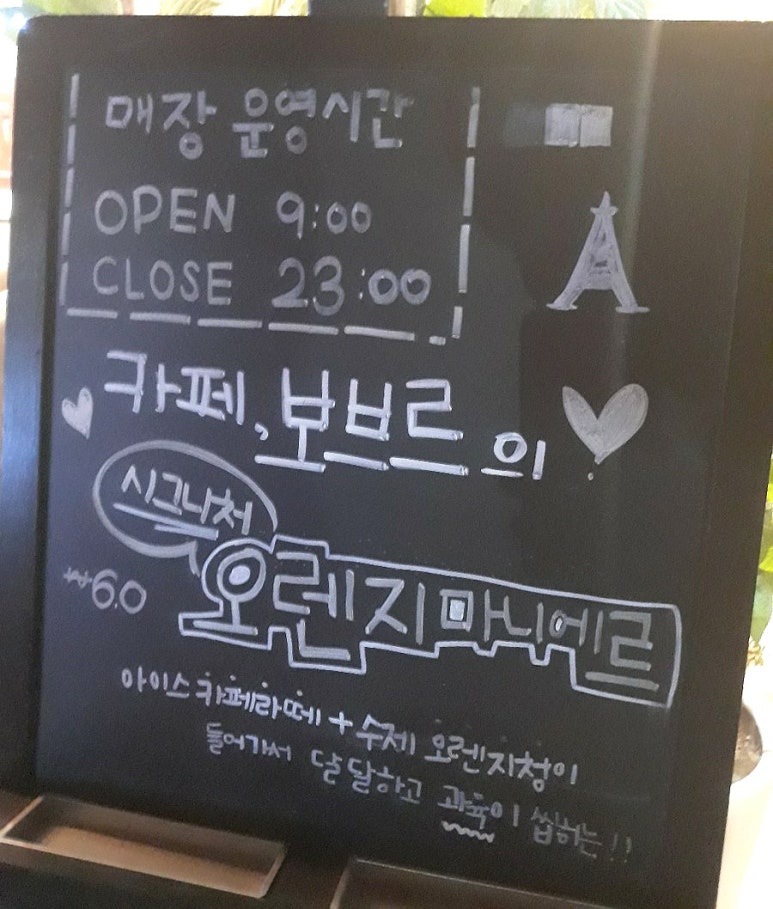 매장 운영시간
OPEN 9:00
CLOSE 23:00
카페, 보브르의
시그니처
₩6.0 오렌지마니에르
아이스카페라떼 + 수제 오렌지청이
들어가서 달달하고 과육이 씹히는!!